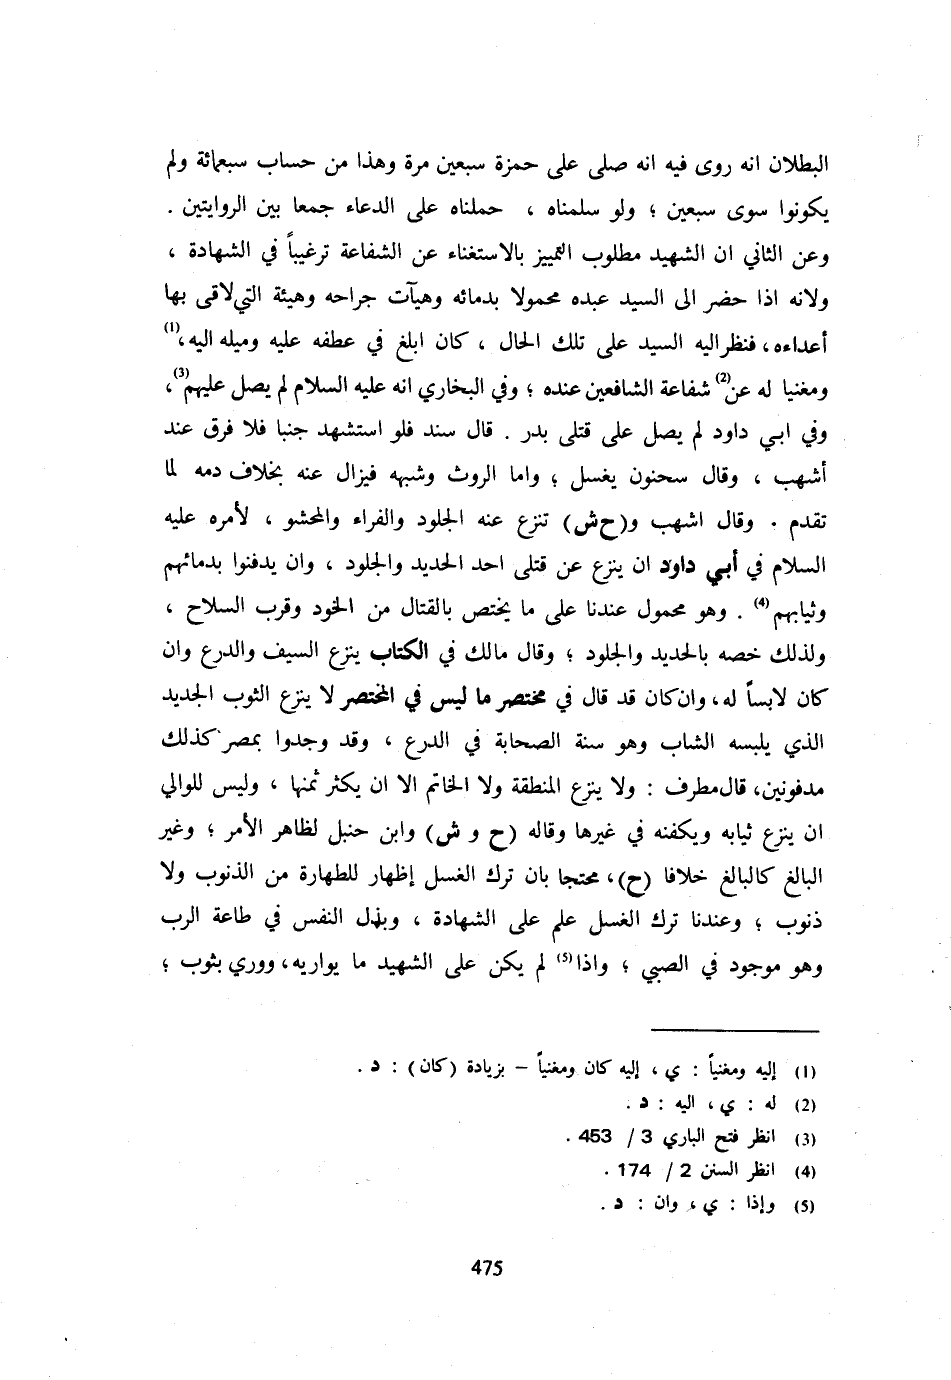 البطلان انه روى فيه انه صلى على حمزة سبعين مرة وهذا من حساب سبعمائة ولم
يكونوا سوى سبعين ؛ ولو سلمناه ، حملناه على الدعاء جمعا بين الروايتين .
وعن الثاني ان الشهيد مطلوب التمييز بالاستغناء عن الشفاعة ترغيباً في الشهادة ،
ولانه اذا حضر الى السيد عبده محمولا بدمائه وهيآت جراحه وهيئة التي لاقى بها
أعداءه ، فنظر اليه السيد على تلك الحال ، كان ابلغ في عطفه عليه وميله اليه ،(1)
ومغنيا له عن(2) شفاعة الشافعين عنده ؛ وفي البخاري انه عليه السلام لم يصل عليهم(3) ،
وفي ابي داود لم يصل على قتلى بدر . قال سند فلو استشهد جنبا فلا فرق عند
أشهب ، وقال سحنون يغسل ؛ واما الروث وشبهه فيزال عنه بخلاف دمه لما
تقدم . وقال اشهب و(ح ش) تنزع عنه الجلود والفراء والمحشو ، لأمره عليه
السلام في أبي داود ان ينزع عن قتلى احد الحديد والجلود ، وان يدفنوا بدمائهم
وثيابهم(4) . وهو محمول عندنا على ما يختص بالقتال من الخود وقرب السلاح ،
ولذلك خصه بالحديد والجلود ؛ وقال مالك في الكتاب ينزع السيف والدرع وان
كان لابساً له ، وان كان قد قال في مختصر ما ليس في المختصر لا ينزع الثوب الجديد
الذي يلبسه الشاب وهو سنة الصحابة في الدرع ، وقد وجدوا بمصر كذلك
مدفونين ، قال مطرف : ولا ينزع المنطقة ولا الخاتم الا ان يكثر ثمنها ، وليس للوالي
ان ينزع ثيابه ويكفنه في غيرها وقاله (ح و ش) وابن حنبل لظاهر الأمر ؛ وغير
البالغ كالبالغ خلافا (ح) ، محتجا بان ترك الغسل إظهار للطهارة من الذنوب ولا
ذنوب ؛ وعندنا ترك الغسل علم على الشهادة ، وبذل النفس في طاعة الرب
وهو موجود في الصبي ؛ واذا(5) لم يكن على الشهيد ما يواريه ، ووري بثوب ؛
(1) إليه ومغنياً : ي ، إليه كان ومغنياً – بزيادة (كان) : د .
(2) له : ي ، اليه : د .
(3) انظر فتح الباري 3 / 453 .
(4) انظر السنن 2 / 174 .
(5) وإذا : ي ، وان : د .
475